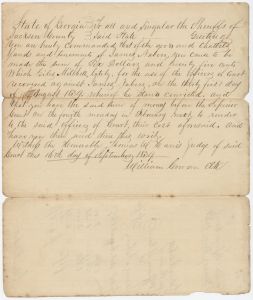 State of Georgia To all and Singular the Sheriffs of
Jackson County Said State Greeting
You are hereby Commanded that of the goods and Chattels
Lands and tenements of James you cause to be
made the Sum of Six Dollars and twenty five cents
Which Giles Mitchell lately, for the use of the officers of Court
recovered against James on the thirty first day
of August 1854 whereof he stands convicted, and
that you have the said Sum of money before the Superior
Court on the fourth monday in February next to render
to the said officers of Court, their cost aforesaid. And
have you then and there this writ.
Witness the Honorable Thomas W. Harris Judge of said
Court this 16th day of September, 1854
William Cowan Clk